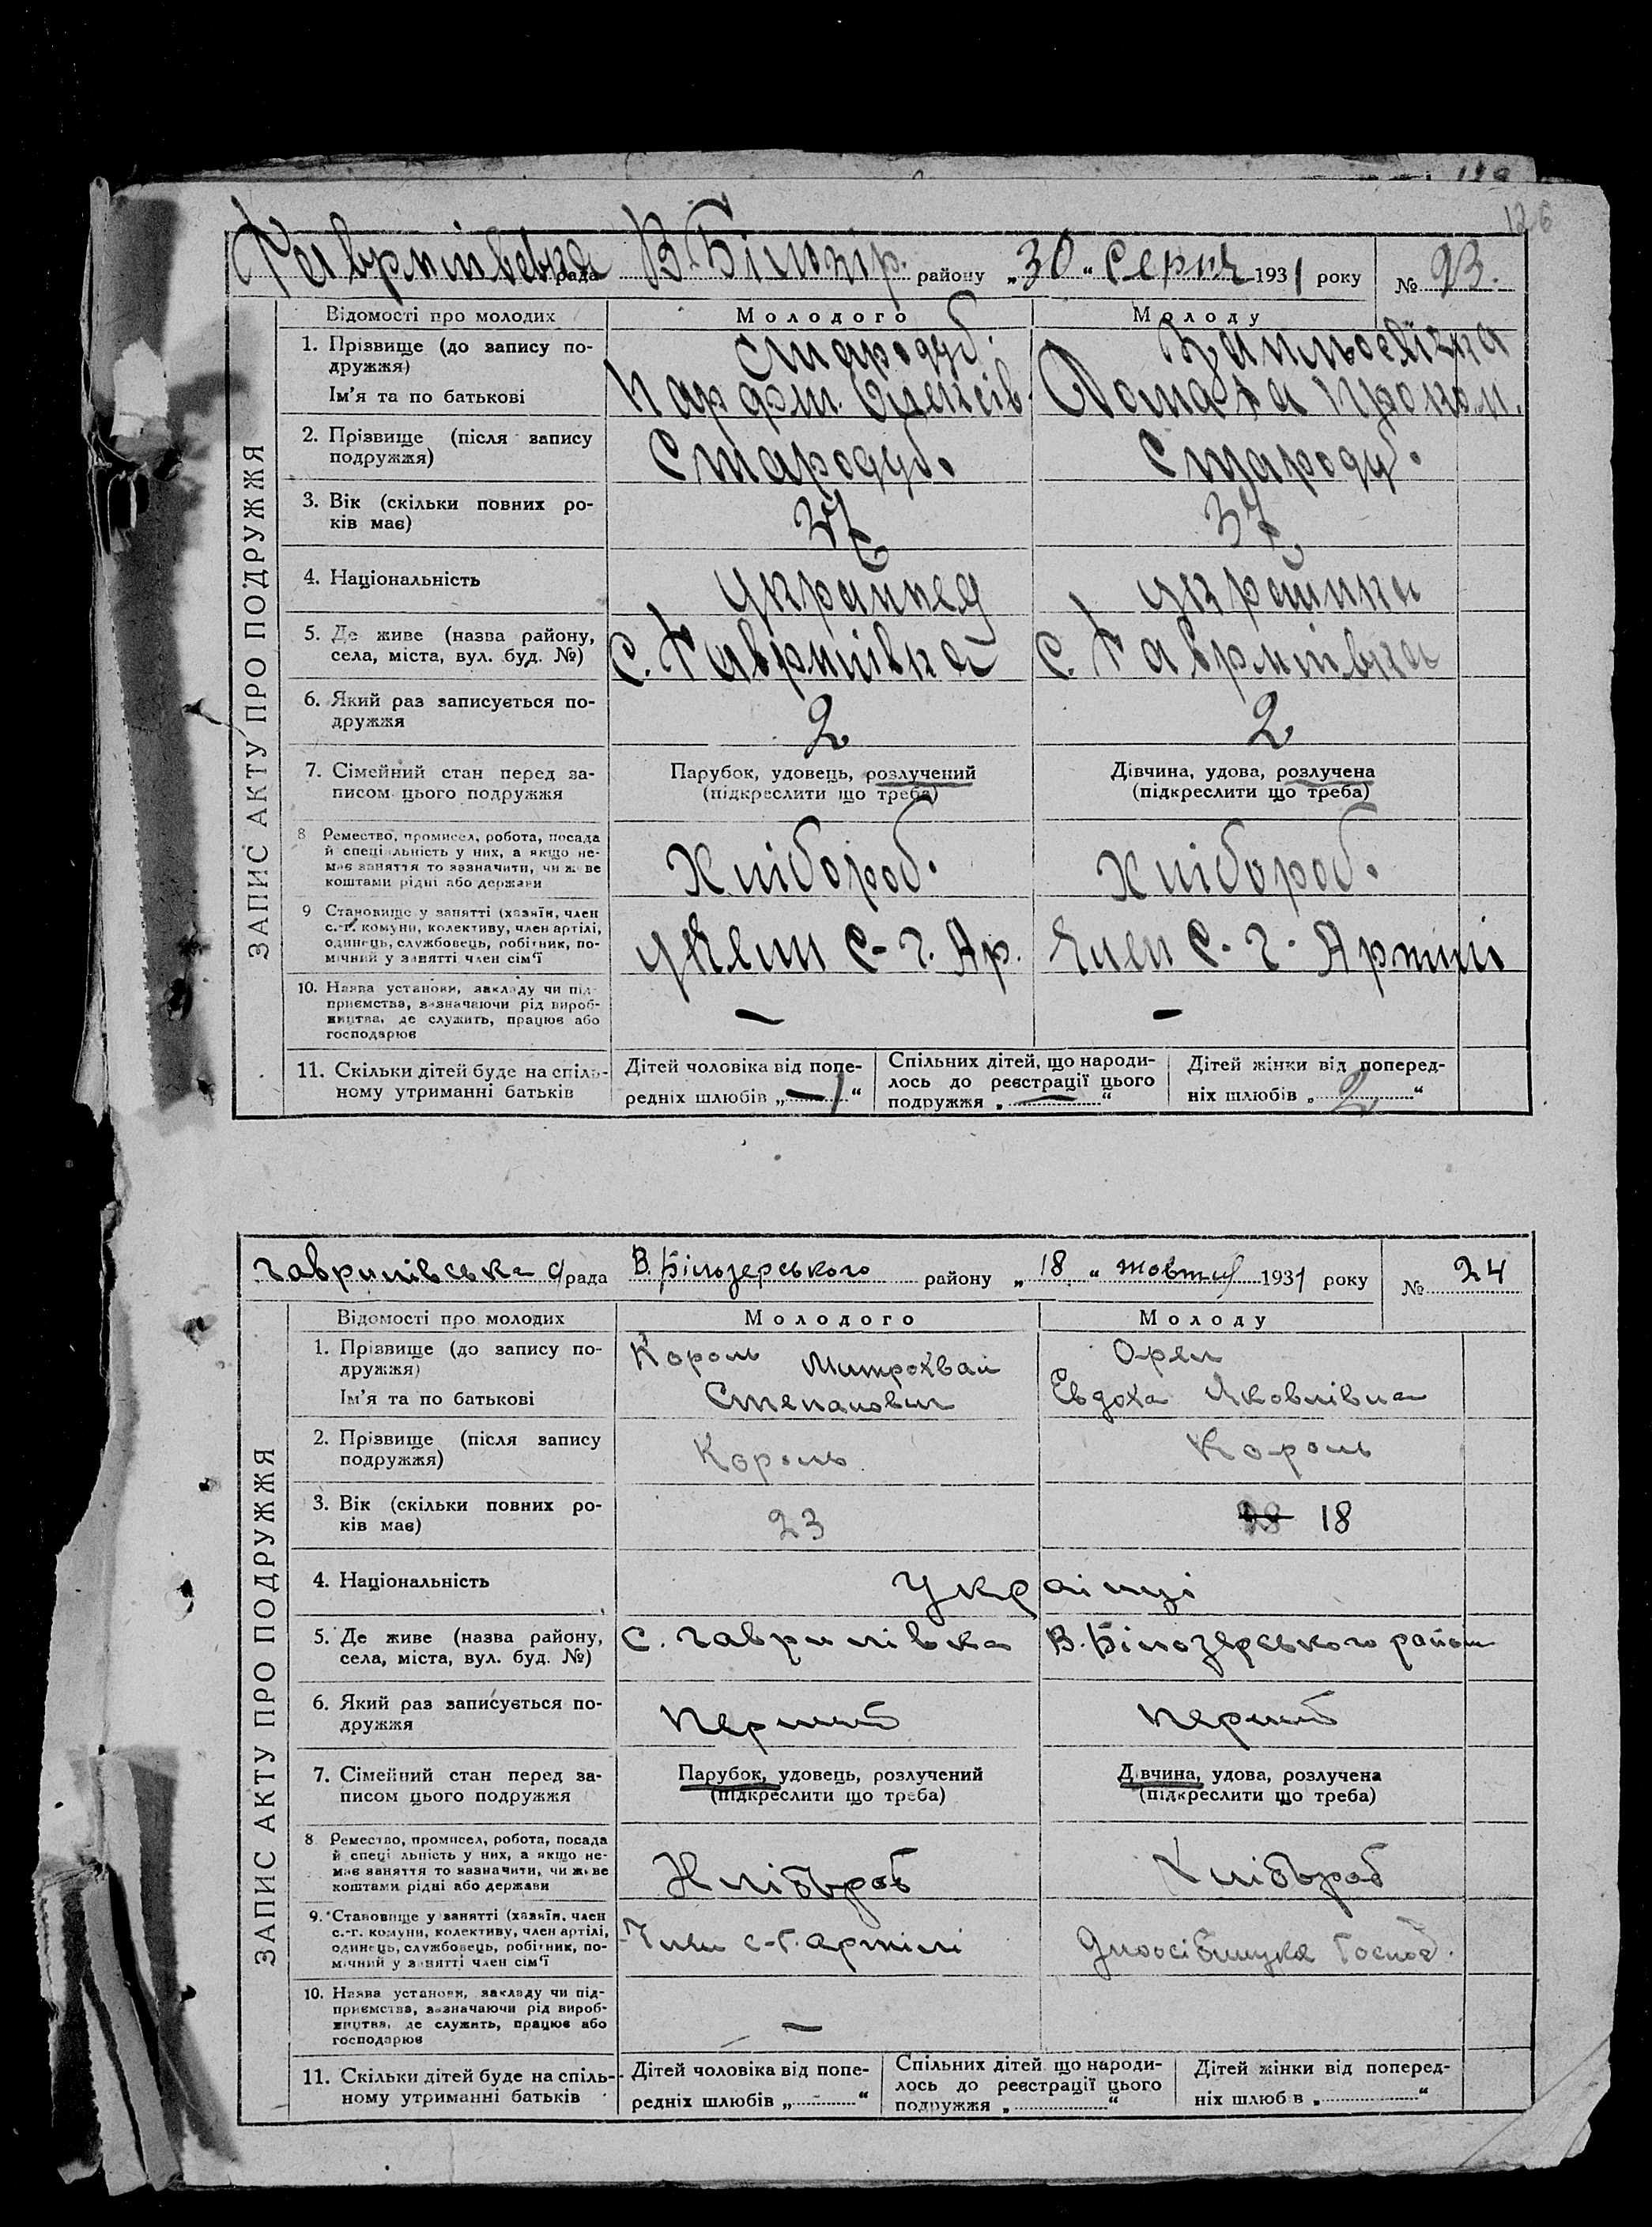 126
Гаврилівська рада В. Білозір. району „30“ серпня 1931 року № 23.
ЗАПИС АКТУ ПРО ПОДРУЖЖЯ
Відомості про молодих
Молодого
Молоду
1. Прізвище (до запису по-
дружжя)
Ім'я та по батькові
Стародуб.
Домаха Прокоп.
2. Прізвище (після запису
подружжя)
Стародуб.
Стародуб.
3. Вік (скільки повних ро-
ків має)
37
37
4. Національність
Українец
Українка
5. Де живе (назва району,
села, міста, вул. буд. №)
С. Гаврилівка
С. Гаврилівка
6. Який раз записується по-
дружжя
2
2
7. Сімейний стан перед за-
писом цього подружжя
Парубок, удовець, розлучений
(підкреслити що треба)
Дівчина, удова, розлучена
(підкреслити що треба)
8 Ремество, промисел, робота, посада
й спеціяльність у них, а якщо не-
має заняття то зазначити, чи живе
коштами рідні або держави
Хлібороб.
Хлібороб.
9 Становище у занятті (хазяїн, член
с.-г. комуни, колективу, член артілі,
одинець, службовець, робітник, по-
мічний у занятті член сім'ї
Член С-г. Ар.
Член С-г. Артілі
10. Назва установи, закладу чи під-
приємства, зазначаючи рід вироб-
ництва, де служить, працює або
господарює
—
—
11. Скільки дітей буде на спіль-
ному утриманні батьків
Дітей чоловіка від попе-
редніх шлюбів „1“
Спільних дітей, що народи-
лось до реєстрації цього
подружжя „—“
Дітей жінки від поперед-
ніх шлюбів „2“
Гаврилівська с/рада В. Білозерського району „18“ жовтня 1931 року № 24
ЗАПИС АКТУ ПРО ПОДРУЖЖЯ
Відомості про молодих
Молодого
Молоду
1. Прізвище (до запису по-
дружжя)
Ім'я та по батькові
Король Митрохван
Степанович
Орел
Евдоха Яковлівна
2. Прізвище (після запису
подружжя)
Король
Король
3. Вік (скільки повних ро-
ків має)
23
18
4. Національність
Українці
5. Де живе (назва району,
села, міста, вул. буд. №)
С. Гаврилівка
В. Білозерського району
6. Який раз записується по-
дружжя
Перший
Перший
7. Сімейний стан перед за-
писом цього подружжя
Парубок, удовець, розлучений
(підкреслити що треба)
Дівчина, удова, розлучена
(підкреслити що треба)
8 Ремество, промисел, робота, посада
й спеціяльність у них, а якщо не-
має заняття то зазначити, чи живе
коштами рідні або держави
Хлібороб
Хлібороб
9. Становище у занятті (хазяїн, член
с.-г. комуни, колективу, член артілі,
одинець, службовець, робітник, по-
мічний у занятті член сім'ї
Член с-г. артілі
Господ.
10. Назва установи, закладу чи під-
приємства, зазначаючи рід вироб-
ництва, де служить, працює або
господарює
—
11. Скільки дітей буде на спіль-
ному утриманні батьків
Дітей чоловіка від попе-
редніх шлюбів „ “
Спільних дітей, що народи-
лось до реєстрації цього
подружжя „ “
Дітей жінки від поперед-
ніх шлюбів „ “